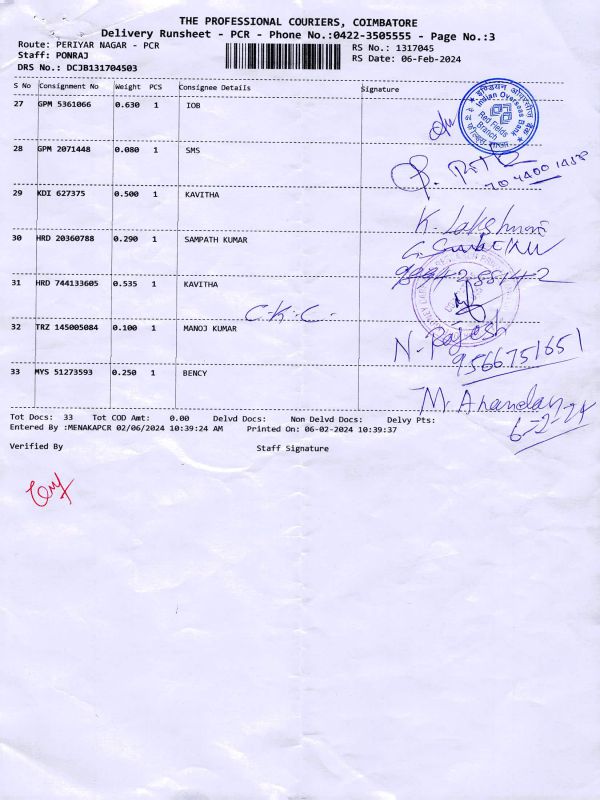 THE PROFESSIONAL COURIERS, COIMBATORE
Delivery Runsheet - PCR - Phone No.:0422-3505555 - Page No.:3
Route: PERIYAR NAGAR - PCR RS No.: 1317045
Staff: PONRAJ RS Date: 06-Feb-2024
DRS No.: DCJB131704503
S No Consignment No Weight PCS Consignee Details Signature
27 GPM 5361066 0.630 1 IOB
Indian Overseas Bank
Red Fields
Branch
28 GPM 2071448 0.080 1 SMS
29 KDI 627375 0.500 1 KAVITHA
K. Lakshmani
30 HRD 20360788 0.290 1 SAMPATH KUMAR
31 HRD 744133605 0.535 1 KAVITHA
C.K.C.
32 TRZ 145005084 0.100 1 MANOJ KUMAR
N. Rajesh
9566751651
33 MYS 51273593 0.250 1 BENCY
M. Anandan
6-2-24
Tot Docs: 33 Tot COD Amt: 0.00 Delvd Docs: Non Delvd Docs: Delvy Pts:
Entered By :MENAKAPCR 02/06/2024 10:39:24 AM Printed On: 06-02-2024 10:39:37
Verified By Staff Signature